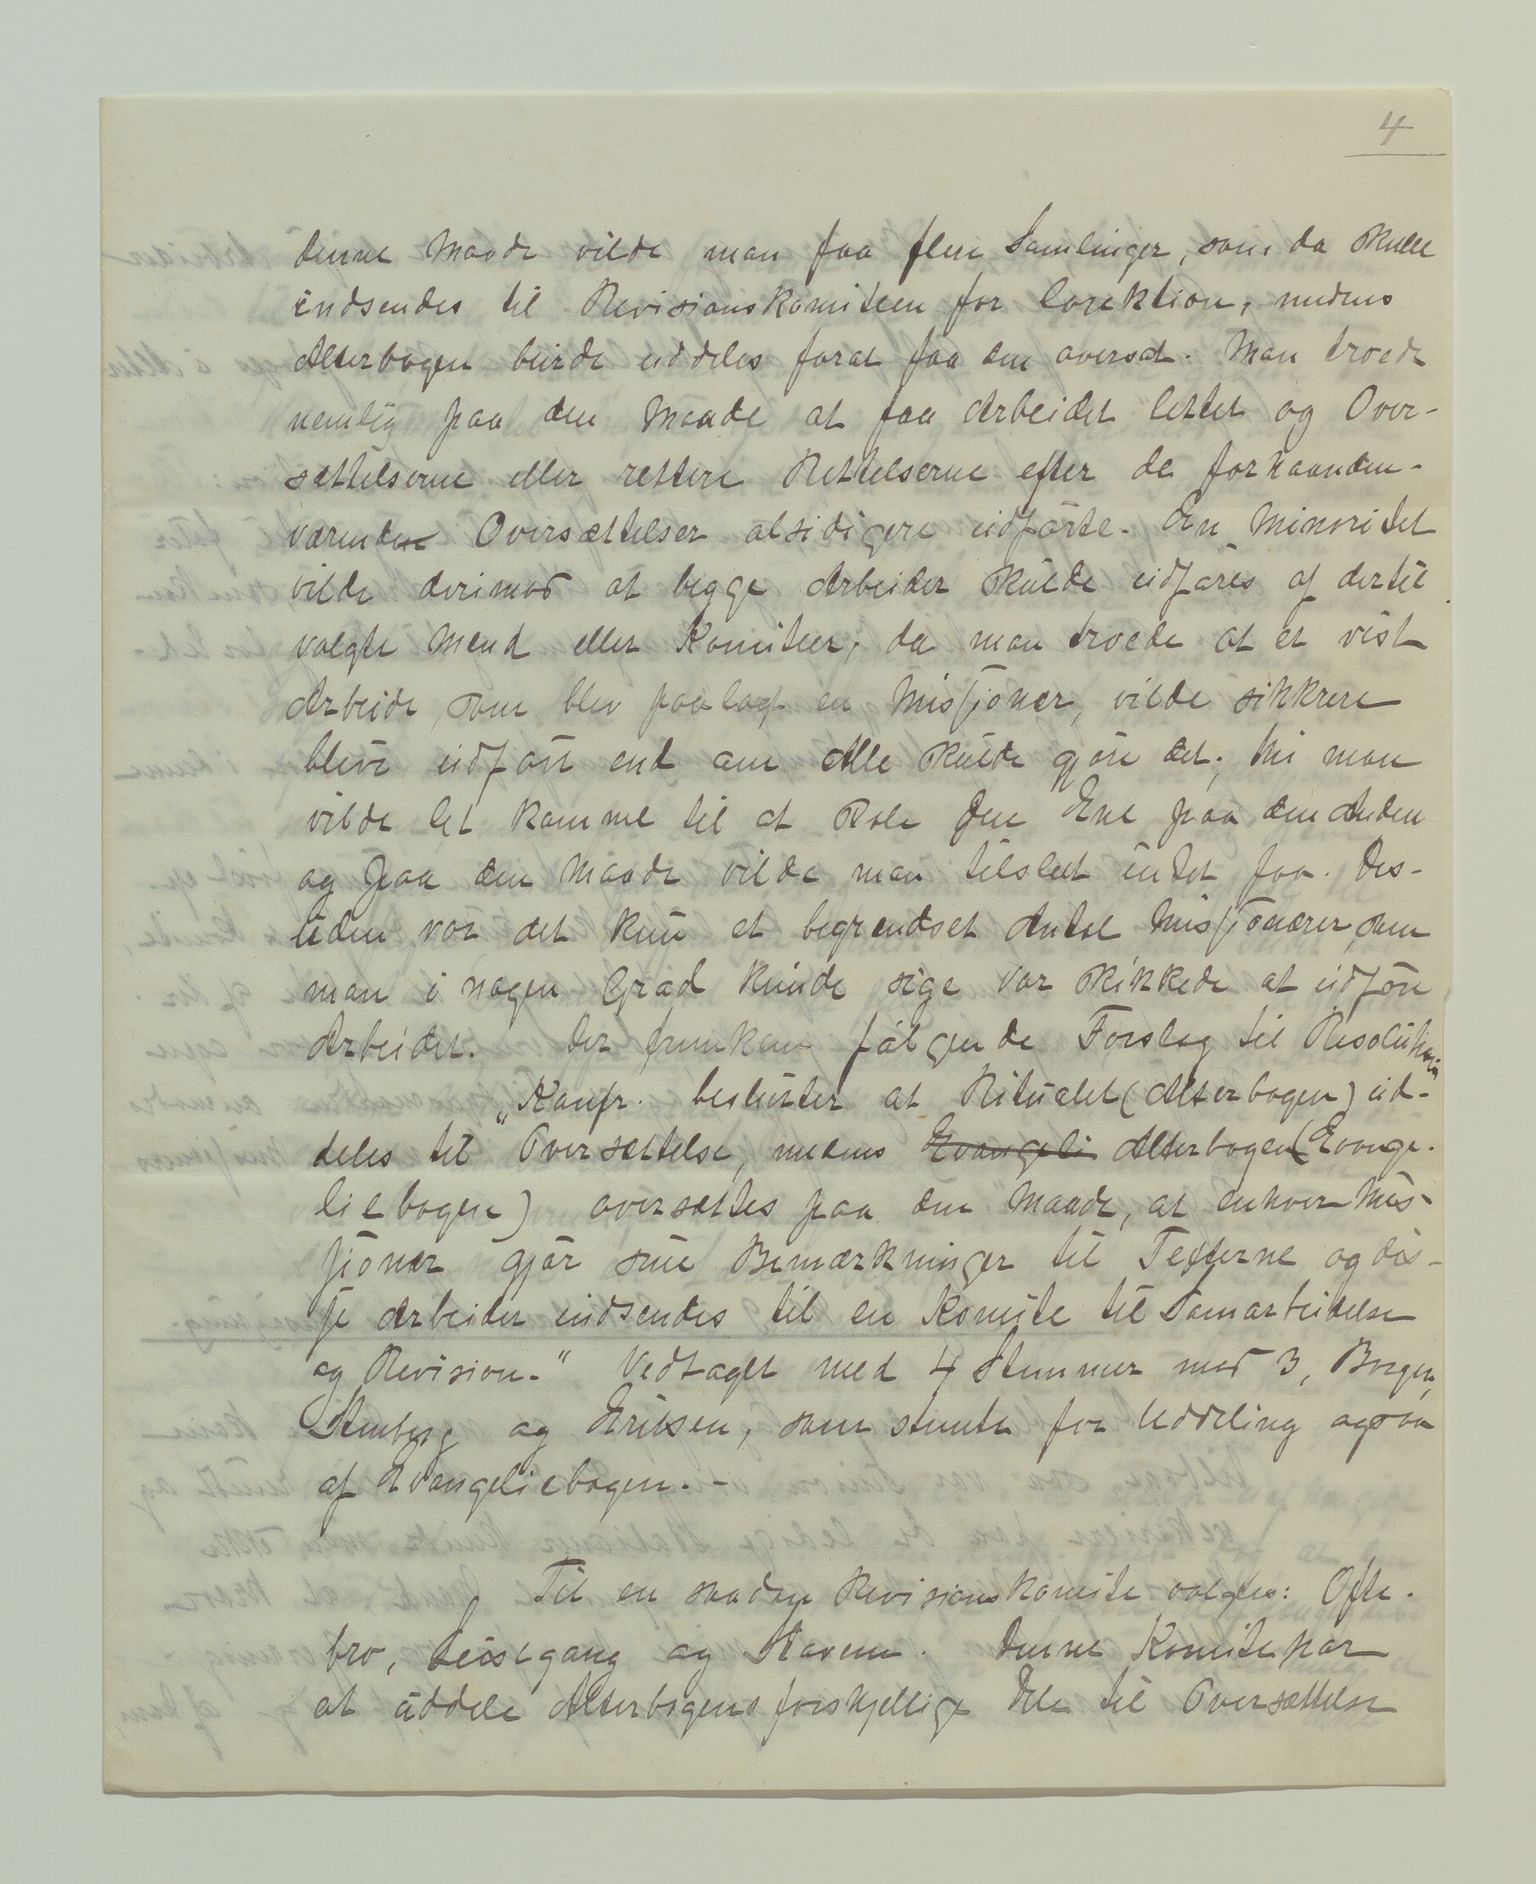 4
denne Maade vilde man faa flere Samlinger, som da skulle
indsendes til Revisionskomiteen for Corektion, medens
Alterbogen burde uddeles forat faa den oversat. Man troede
nemlig paa den Maade at faa Arbeidet lettet og Over-
sættelserne eller rettere Rettelserne efter de forhaanden-
værende Oversættelser alsidigere udførte. En Minoritet
vilde derimod at begge Arbeider skulde udføres af dertil
valgte Mænd eller Komiteer, da man troede at et vist
Arbeide, som blev paalagt en Missjonær, vilde sikkrere
blive udført end om Alle skulde gjøre det; thi man
vilde let komme til at stole den Ene paa den Anden
og paa den Maade vilde man tilslut intet faa. Des-
uden var det kun et begrændset Antal Missjonærer, som
man i nogen Grad kunde sige var skikkede at udføre
Arbeidet. Der fremkom følgende Forslag til Resolution
„Konfr. beslutter at Ritualet (Alterbogen) ud-
deles til Oversættelse, medens Evangeli Alterbogen (Evange-
liebogen) oversættes paa den Maade, at enhver Mis-
sjonær gjør sine Bemærkninger til Texterne og dis-
se Arbeider indsendes til en Komite til Samarbeidelse
og Revision." Vedtaget med 4 Stemmer mod 3, Borgen,
Stenberg og Eriksen, som stemte for Uddeling ogsaa
af Evangeliebogen. -
Til en saadan Revisionskomite valgtes: Ofte-
bro, Leisegang og Stavem. Denne Komite har
at uddele Alterbogens forskjellige Dele til Oversættelse